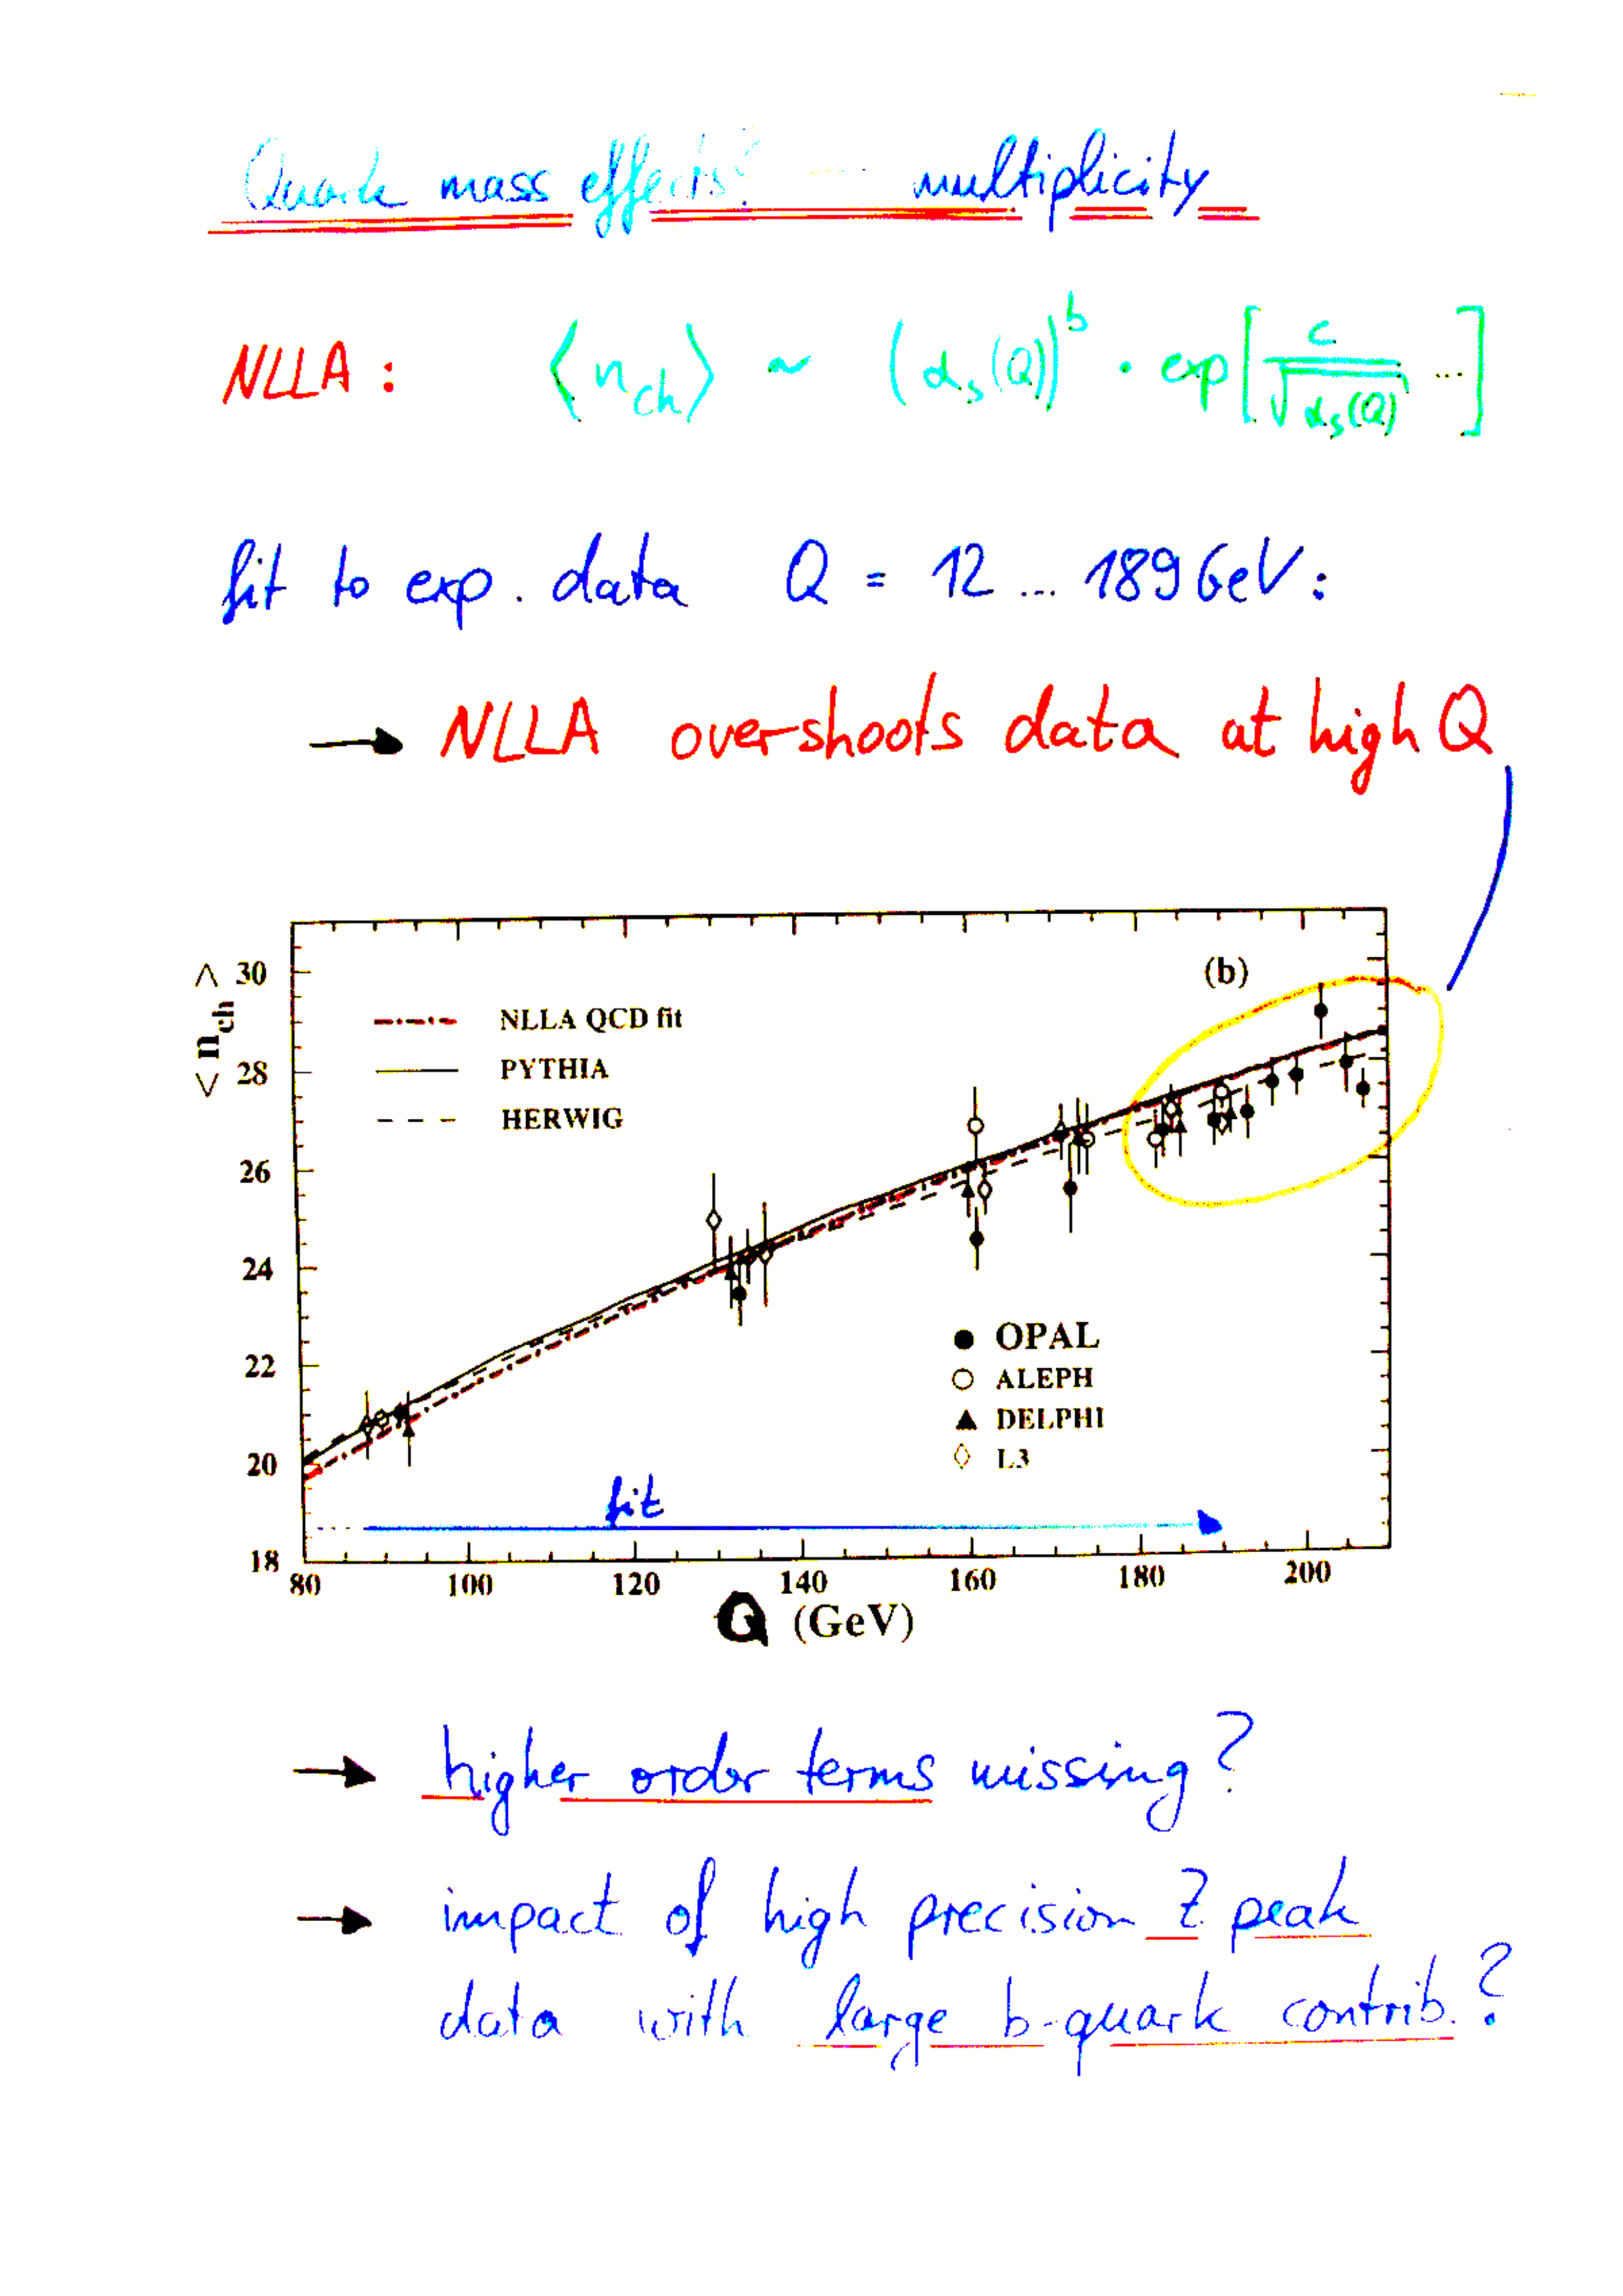 Quark mass effects? - multiplicity
NLLA : ⟨n_ch⟩ ~ (α_s(Q))^b · exp[c/√α_s(Q) ...]
fit to exp. data Q = 12 ... 189 GeV :
→ NLLA overshoots data at high Q
< n_ch >
30
28
26
24
22
20
18
(b)
NLLA QCD fit
PYTHIA
HERWIG
OPAL
ALEPH
DELPHI
L3
fit
80 100 120 140 160 180 200
Q (GeV)
→ higher order terms missing?
→ impact of high precision Z peak
data with large b-quark contrib.?